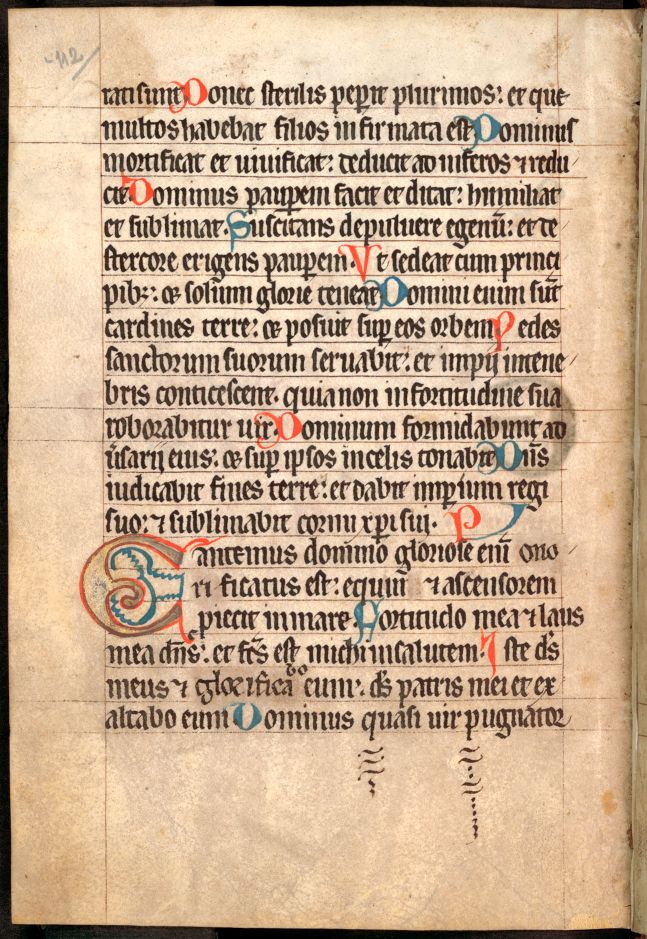 112
rati sunt Donec sterilis peperit plurimos: et que
multos habebat filios infirmata est Dominus
mortificat et uiuificat: deducit ad inferos ⁊ redu
cit Dominus paupem facit et ditat: humiliat
et sublimat. Suscitans de puluere egenū: et de
stercore erigens paupem. Vt sedeat cum princi
pibꝫ: et solium glorie teneat Domini enim sūt
cardines terre: et posuit sup eos orbem Pedes
sanctorum suorum seruabit: et impij intene
bris conticescent. quia non infortitudine sua
roborabitur uir. Dominum formidabunt ad
ūsarij eius: et sup ipsos in celis tonabit Dn̄s
iudicabit fines terre: et dabit impium regi
suo: ⁊ sublimabit cornu xpi sui. P
Cantemus domino gloriose enī ono
rificatus est: equum ⁊ ascensorem
piecit in mare Fortitudo mea ⁊ laus
mea dn̄s: et fc̄s est michi in salutem. Iste ds̄
meus ⁊ glorificabo eum: ds̄ patris mei et ex
altabo eum Dominus quasi uir pugnator